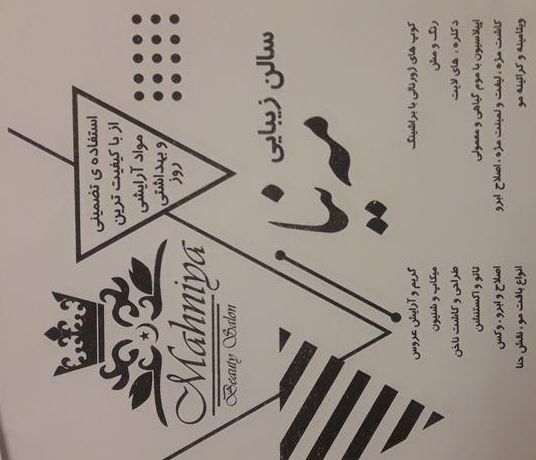 سالن زیبایی
مهرنیا
استفاده ی تضمینی
از با کیفیت ترین
مواد آرایشی
و بهداشتی
روز
Mahniya
Beauty Salon
کوپ های ژورنالی با براشینگ
رنگ و مش
دکلره ، های لایت
اپیلاسیون با موم گیاهی و معمولی
کاشت مژه ، لیفت و لمینت مژه ، اصلاح ابرو
ویتامینه و کراتینه مو
گریم و آرایش عروس
میکاپ و شنیون
طراحی و کاشت ناخن
تاتو و اکستنشن
اصلاح و ابرو ، وکس
انواع بافت مو ، نقش حنا